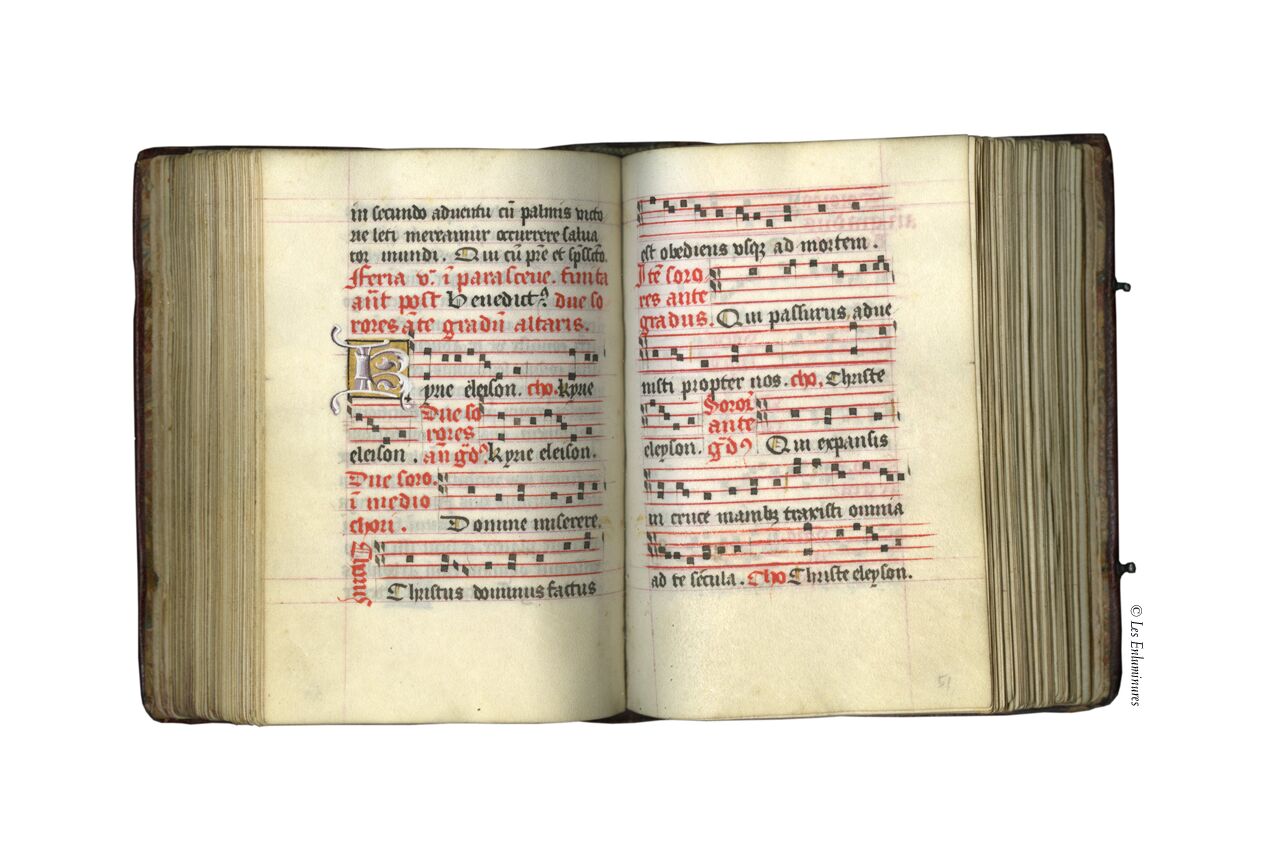 in secundo aduentu cū palmis victo
rie leti mereamur occurrere salua
tori mundi. Qui cū pre et spūscto.
Feria vͣ. ī parasceue. finita
añt post Benedictꝰ due so
rores āte gradū altaris.
Kyrie eleison. cho. kyrie
eleison. Due so
rores
añ gdꝰ kyrie eleison.
Due soro.
ī medio
chori. Domine miserere.
Chorus
Christus dominus factus
est obediens vsqꝫ ad mortem.
Itē soro
res ante
gradus. Qui passurus adue
nisti propter nos. cho. Christe
eleyson. Soror̄
ante
gdꝰ Qui expansis
in cruce manibꝫ traxisti omnia
ad te secula. Cho Christe eleyson.
51
© Les Enluminures